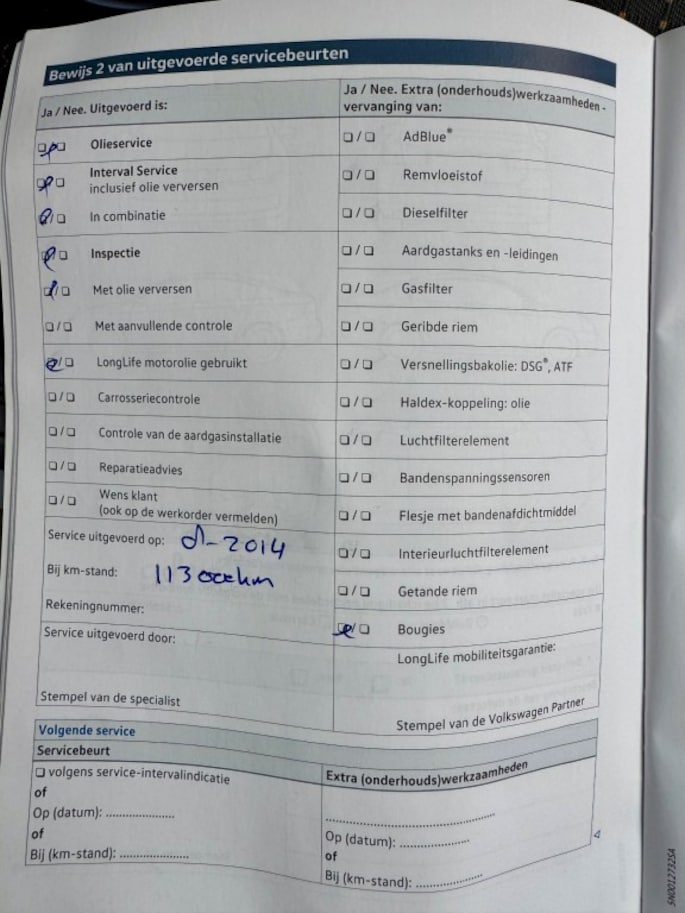 Bewijs 2 van uitgevoerde servicebeurten
Ja / Nee. Uitgevoerd is:
Olieservice
Interval Service
inclusief olie verversen
In combinatie
Inspectie
Met olie verversen
Met aanvullende controle
LongLife motorolie gebruikt
Carrosseriecontrole
Controle van de aardgasinstallatie
Reparatieadvies
Wens klant
(ook op de werkorder vermelden)
Service uitgevoerd op: -2014
Bij km-stand: 113000km
Rekeningnummer:
Service uitgevoerd door:
Stempel van de specialist
Ja / Nee. Extra (onderhouds)werkzaamheden -
vervanging van:
AdBlue®
Remvloeistof
Dieselfilter
Aardgastanks en -leidingen
Gasfilter
Geribde riem
Versnellingsbakolie: DSG®, ATF
Haldex-koppeling: olie
Luchtfilterelement
Bandenspanningssensoren
Flesje met bandenafdichtmiddel
Interieurluchtfilterelement
Getande riem
Bougies
LongLife mobiliteitsgarantie:
Stempel van de Volkswagen Partner
Volgende service
Servicebeurt
volgens service-intervalindicatie
of
Op (datum): ....................
of
Bij (km-stand): ....................
Extra (onderhouds)werkzaamheden
..................................................
Op (datum): ....................
of
Bij (km-stand): ....................
SN0012732SA